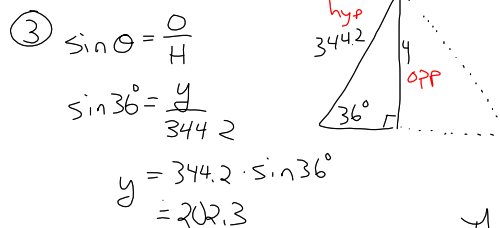 ③ sin θ = O/H
sin 36° = y/344.2
y = 344.2 · sin 36°
= 202.3
hyp
344.2
y
opp
36°